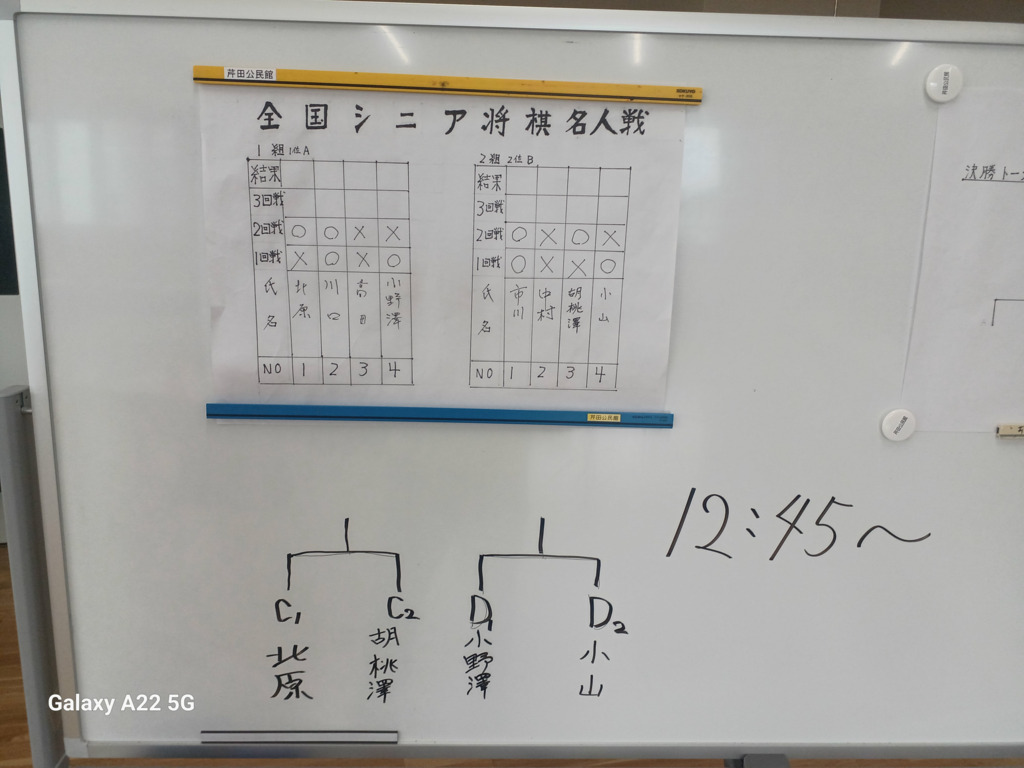 芹田公民館
全国シニア将棋名人戦
1組 1位A
結果
3回戦
2回戦 ○ ○ × ×
1回戦 × ○ × ○
氏名 北原 川口 高田 小野澤
NO 1 2 3 4
2組 2位B
結果
3回戦
2回戦 ○ × ○ ×
1回戦 ○ × × ○
氏名 市川 中村 胡桃澤 小山
NO 1 2 3 4
芹田公民館
決勝トー
12:45〜
C1 C2 D1 D2
北原 胡桃澤 小野澤 小山
Galaxy A22 5G